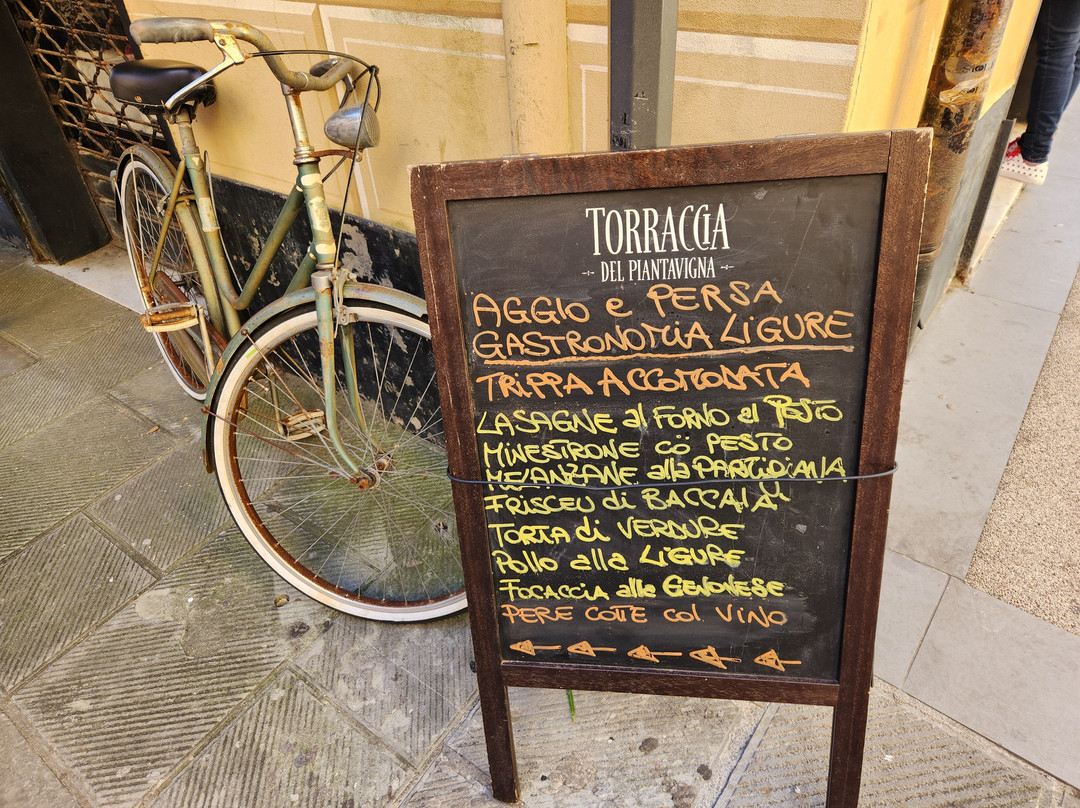 TORRACCIA
DEL PIANTAVIGNA
AGGIO e PERSA
GASTRONOMIA LIGURE
TRIPPA ACCOMODATA
LASAGNE al FORNO al PESTO
MINESTRONE cö PESTO
MELANZANE alla PARTIDIANA
FRISCEU di BACCALA'
TORTA di VERDURE
Pollo alla LIGURE
FOCACCIA alla GENOVESE
PERE COTTE col VINO